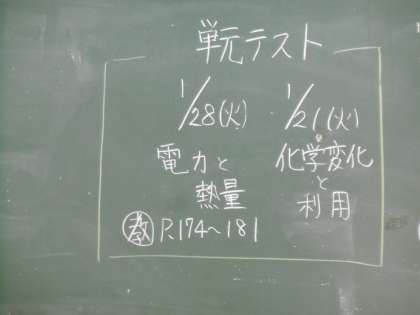 単元テスト
1/21(火)
化学変化
と
利用
1/28(火)
電力と
熱量
教 P.174~181